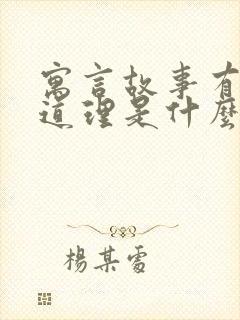 寓言故事有
道理是什麼
楊某雷